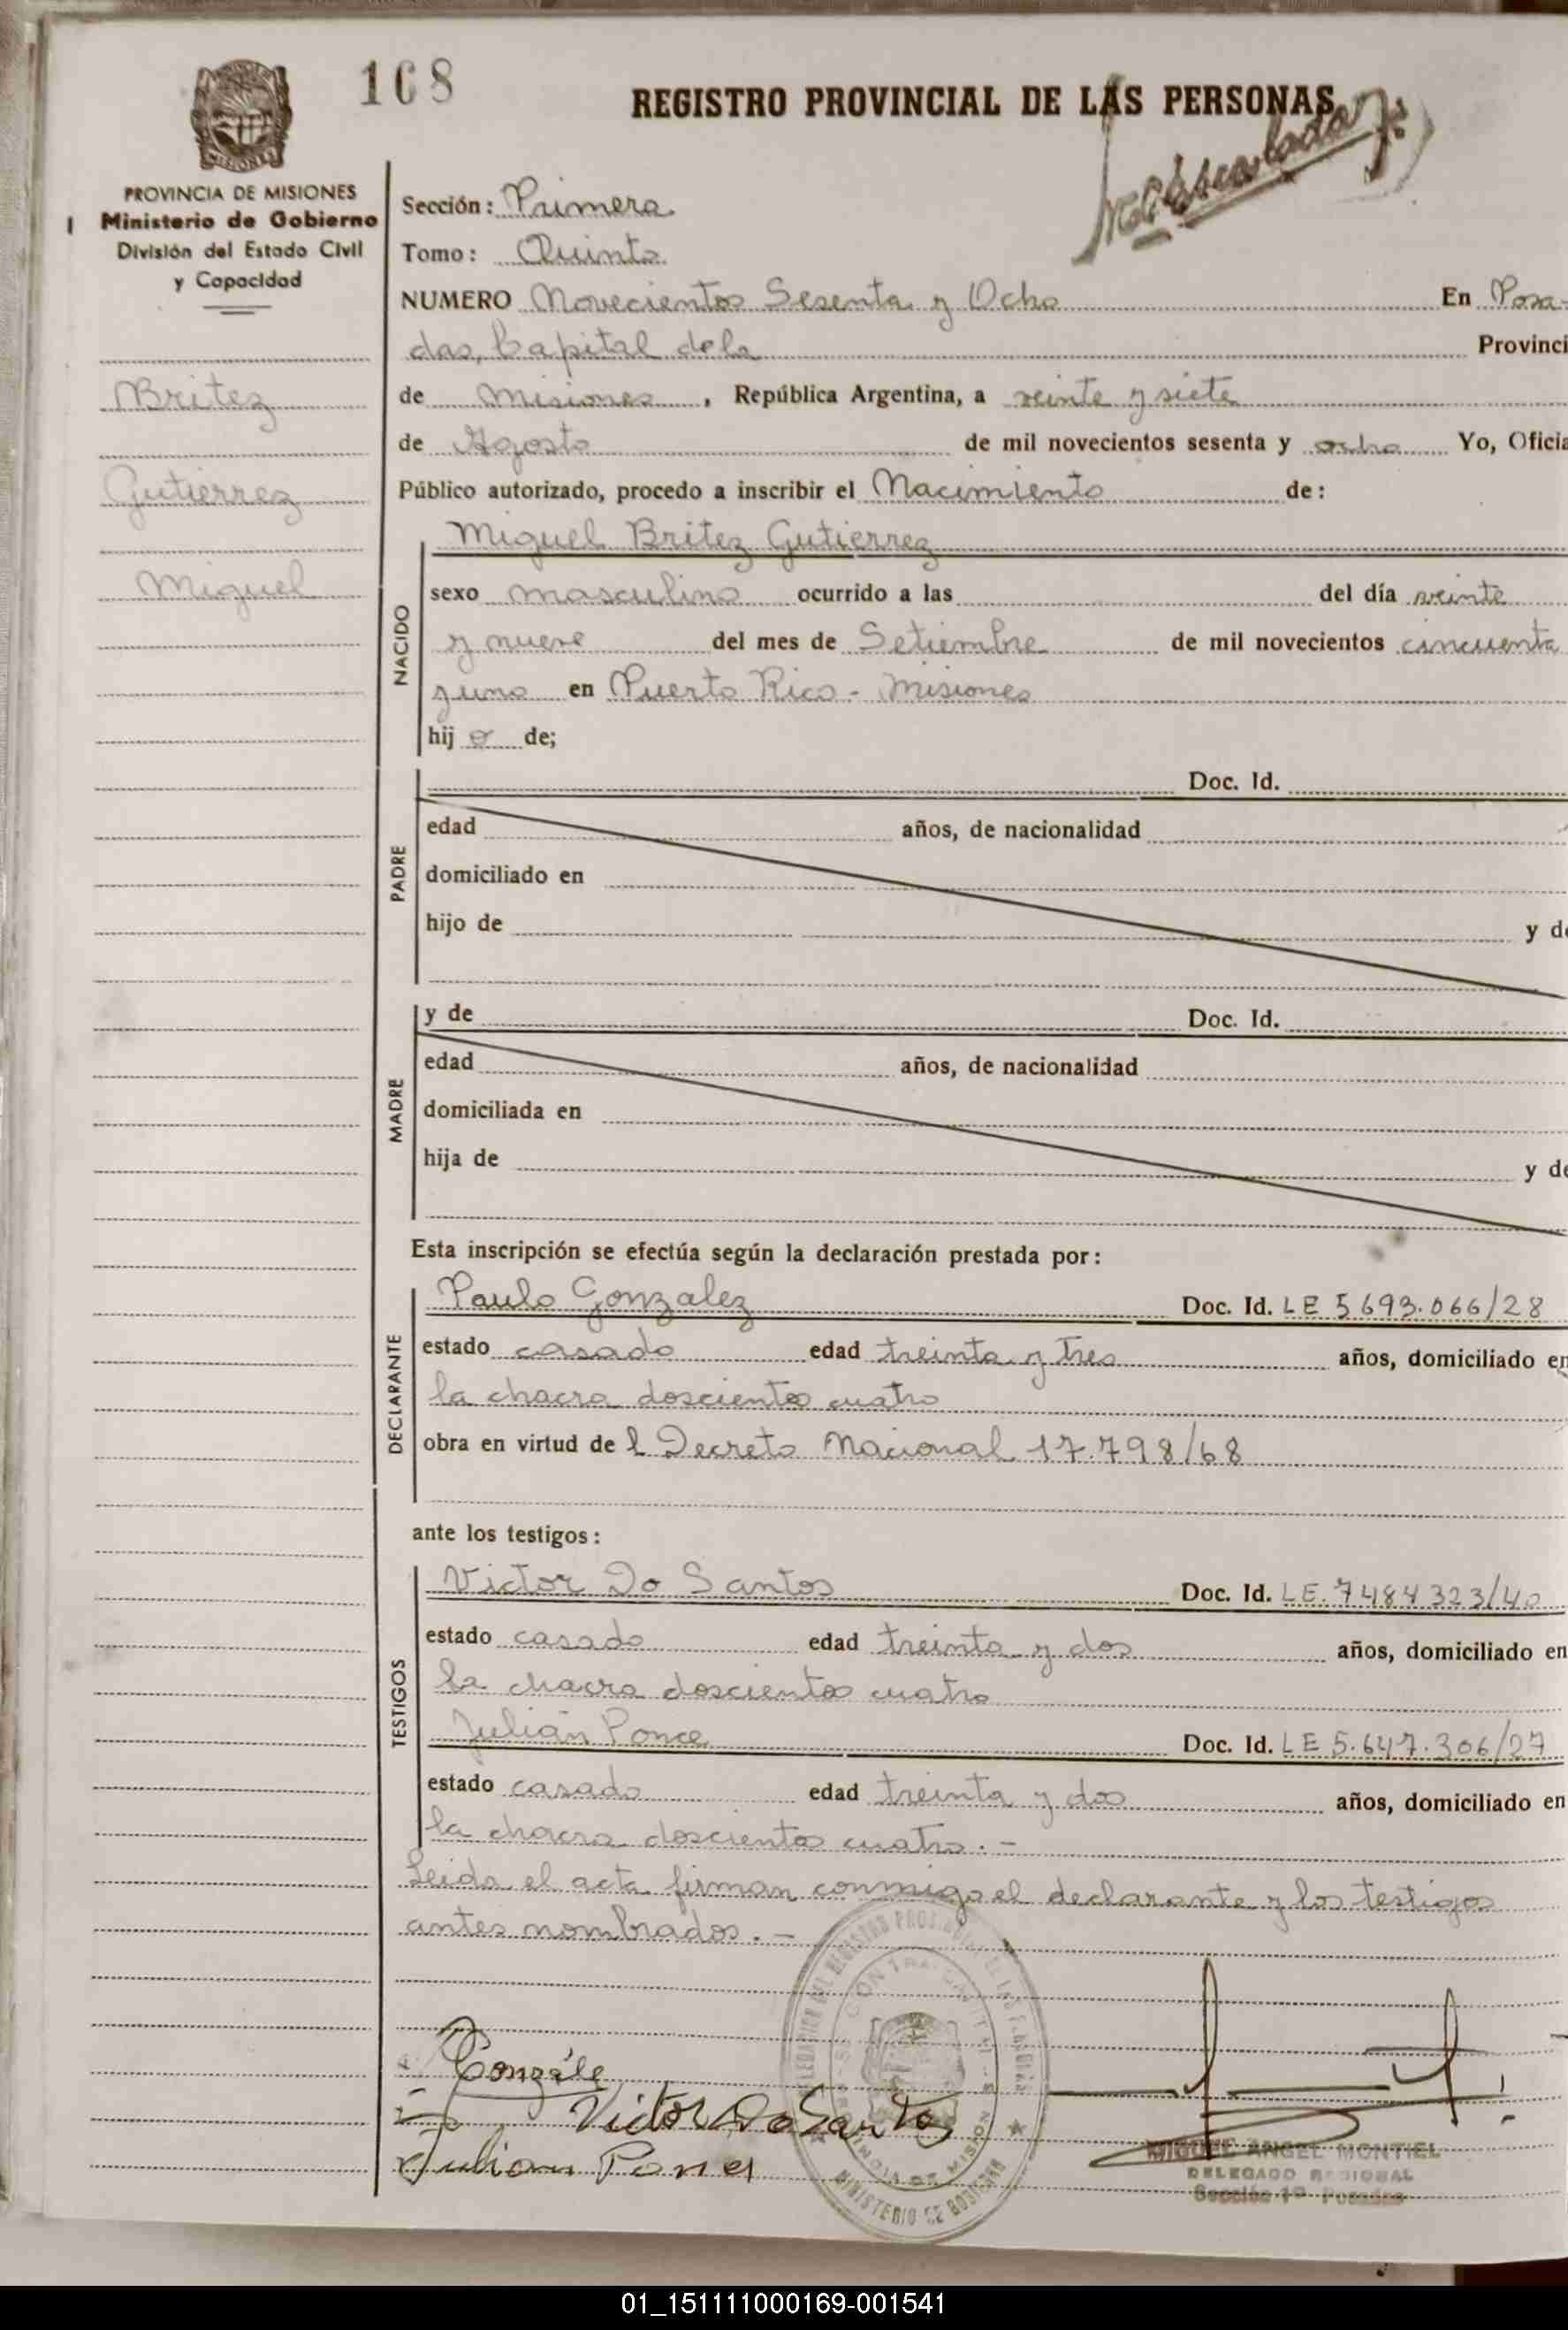 168
REGISTRO PROVINCIAL DE LAS PERSONAS
MISIONES
PROVINCIA DE MISIONES
Ministerio de Gobierno
División del Estado Civil
y Capacidad
Britez
Gutierrez
Miguel
Sección: Primera
Tomo: Quinto
NUMERO Novecientos Sesenta y Ocho En Posa-
das, Capital de la Provinci
de Misiones, República Argentina, a veinte y siete
de Agosto de mil novecientos sesenta y ocho Yo, Oficia
Público autorizado, procedo a inscribir el Nacimiento de:
NACIDO
Miguel Britez Gutierrez
sexo masculino ocurrido a las del día veinte
y nueve del mes de Setiembre de mil novecientos cincuenta
y uno en Puerto Rico - Misiones
hijo de;
PADRE
Doc. Id.
edad años, de nacionalidad
domiciliado en
hijo de y de
MADRE
y de Doc. Id.
edad años, de nacionalidad
domiciliada en
hija de y de
Esta inscripción se efectúa según la declaración prestada por:
DECLARANTE
Paulo Gonzalez Doc. Id. LE 5693.066/28
estado casado edad treinta y tres años, domiciliado en
la chacra doscientos cuatro
obra en virtud del Decreto Nacional 17.798/68
ante los testigos:
TESTIGOS
Victor Do Santos Doc. Id. LE. 7484323/40
estado casado edad treinta y dos años, domiciliado en
la chacra doscientos cuatro
Julián Ponce Doc. Id. LE 5.647.306/27
estado casado edad treinta y dos años, domiciliado en
la chacra doscientos cuatro.-
Leida el acta firman conmigo el declarante y los testigos
antes nombrados.-
Gonzále
Victor Do Santos
Julian Ponce
MINISTERIO DE GOBIERNO
MIGUEL ANGEL MONTIEL
DELEGADO REGIONAL
Sección 1ª Posadas
01_151111000169-001541